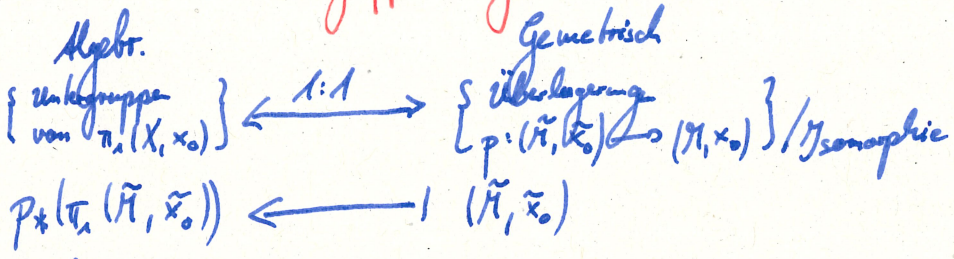 Algebr. Geometrisch
{ Untergruppen von π₁(X, x₀) } ⟷ 1:1 { Überlagerungen p: (M̃, x̃₀) → (M, x₀) } / Isomorphie
p_*(π₁(M̃, x̃₀)) ⟵| (M̃, x̃₀)